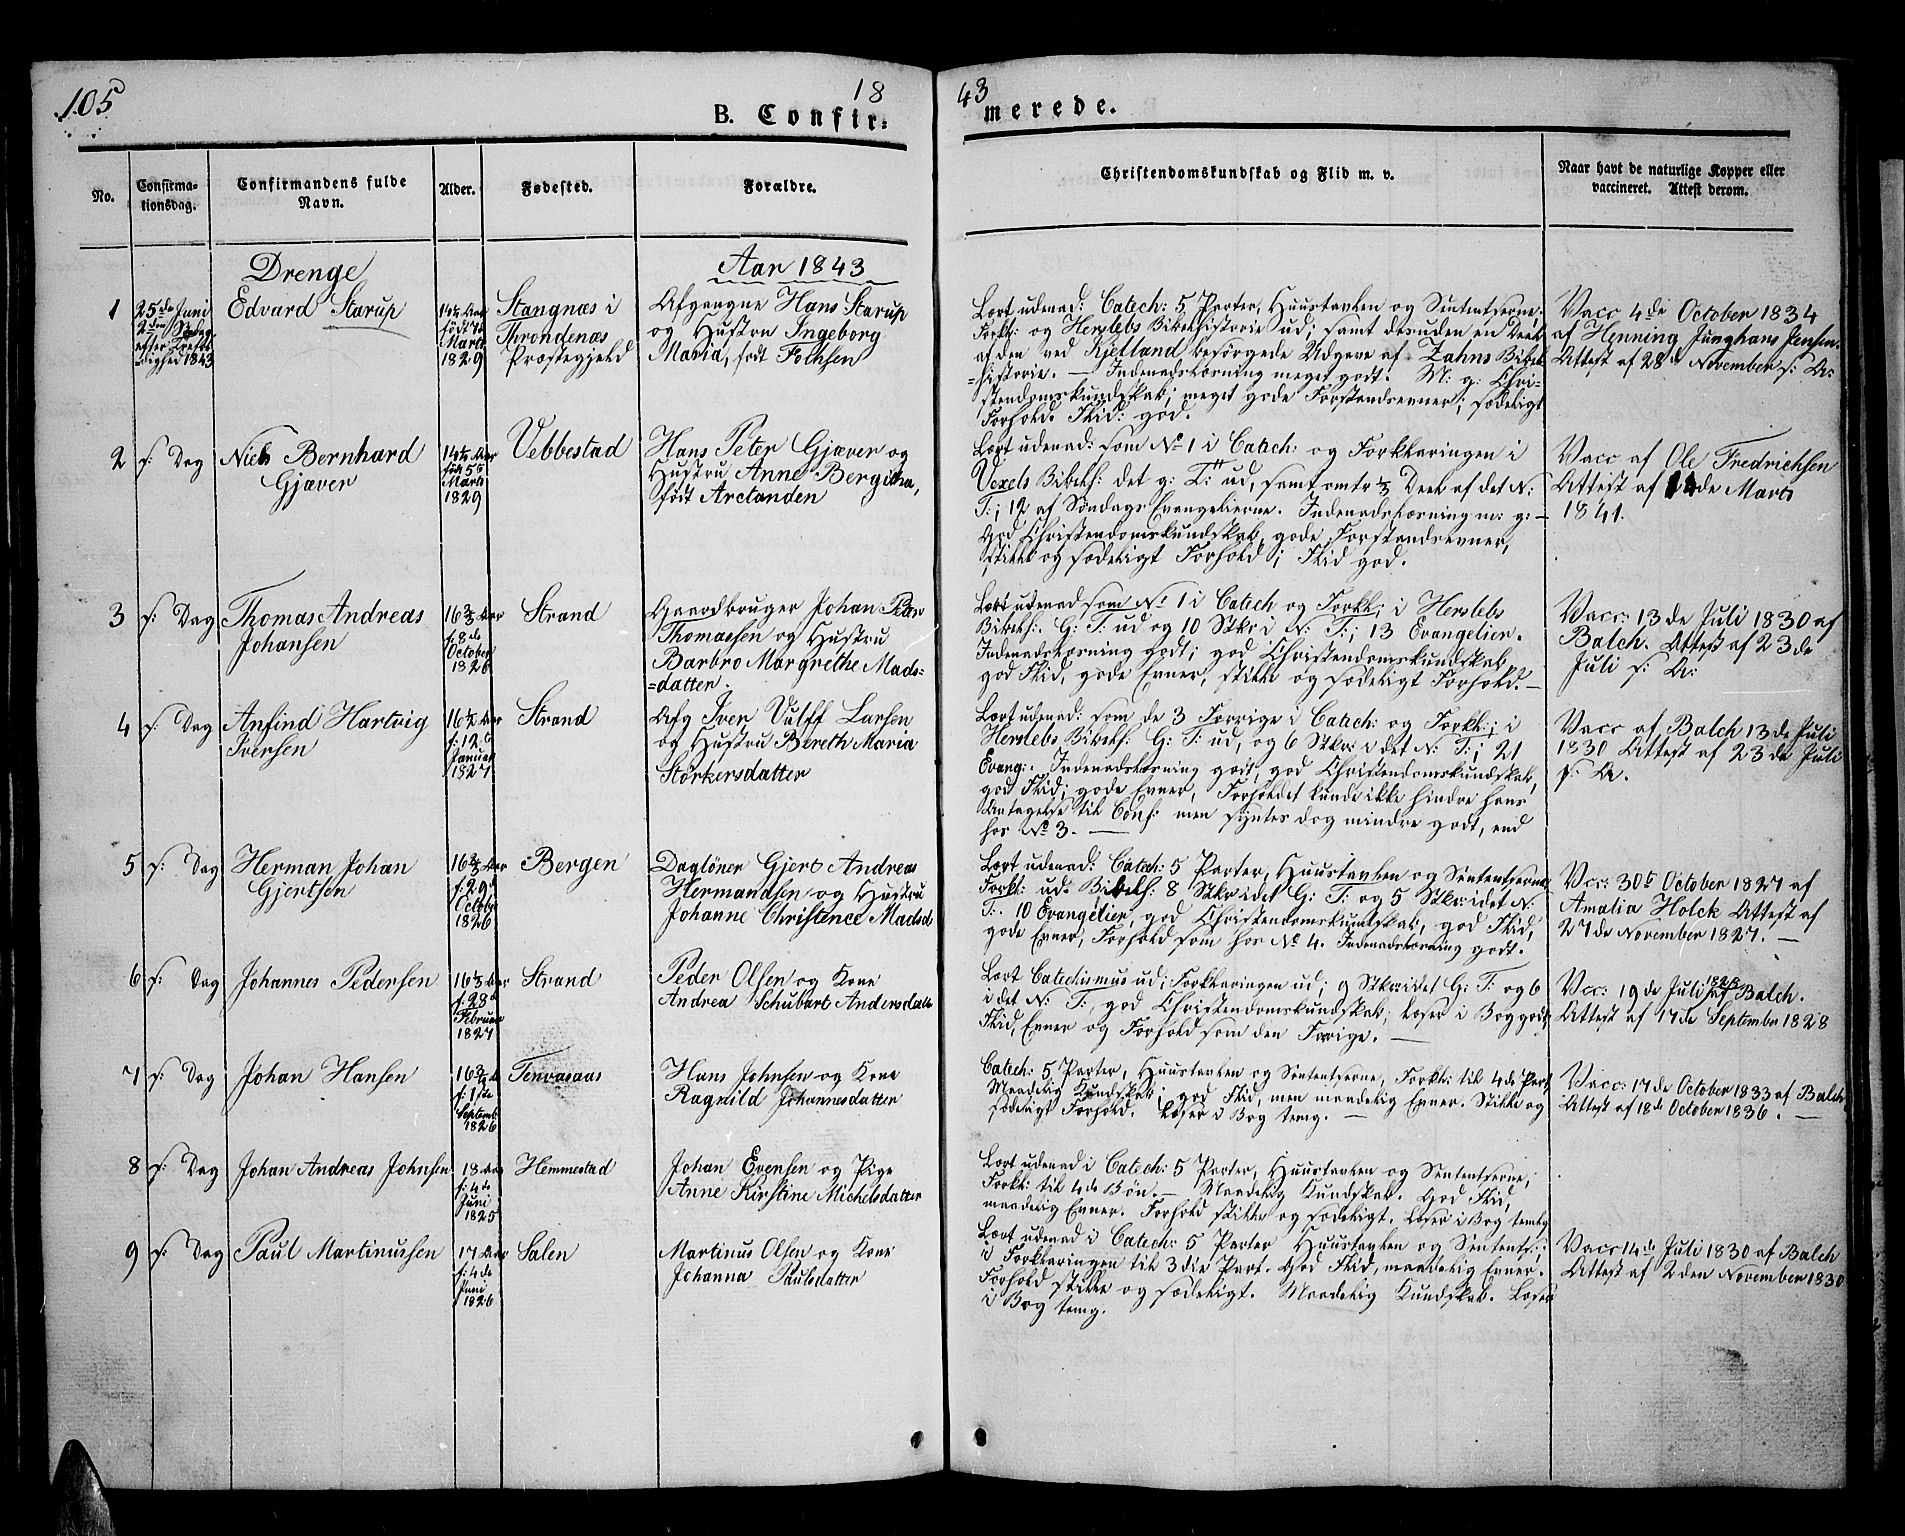 105
18
43
B. Confir-
merede.
No.
Confirma-
tionsdag.
Confirmandens fulde
Navn.
Alder.
Fødested.
Forældre.
Christendomskundskab og Flid m. v.
Naar havt de naturlige Kopper eller
vaccineret. Attest derom.
Drenge
Aar 1843
1
25de Juni
2den Søndag
efter Trefol-
dighed 1843
Edvard Starup
født
Marts
1829
Stangnæs i
Throndenæs
Præstegjeld
Afgangne Hans Starup
og Hustru Ingeborg
Maria, født Folhsen
Lært udenad: Catech: 5 Parter, Huustavlen og Sententserne,
Forkl: og Herslebs Bibelhistorie ud; samt desuden en Deel
af den ved Kjelland besørgede Udgave af Zahns Bibel
=historie. — Indenadslæsning meget godt. M: g: Chri-
stendomskundskab; meget gode Forstandsevner; sædeligt
Forhold. Flid: god.
Vacc 4de October 1834
af Henning Junghans Jensen.
Attest af 28de November s: A:
2
s: Dag
Niels Bernhard
Gjæver
14 Aar
født 5te
Marts
1829
Vebbestad
Hans Peter Gjæver og
Hustru Anne Bergitha,
født Arctanden
Lært udenad: som No 1 i Catech: og Forklaringen i
Vexels Bibelh: det g: T: ud, samt omtr ⅓ Deel af det N:
T:; 12 af Søndags Evangelierne. Indenadslæsning m: g: —
God Christendomskundskab, gode Forstandsevner,
stille og sædeligt Forhold; Flid god.
Vacc af Ole Fredrichsen
Attest af 14de Marts
1841.
3
s: Dag
Thomas Andreas
Johansen
16 Aar
f. 8de
October
1826
Strand
Gaardbruger Johan Peter
Thomassen og Hustru
Barbro Margrethe Mads-
=datter.
Lært udenad som No 1 i Catech og Forkl; i Herslebs
Bibelh: G: T: ud og 10 Stkr i N: T:; 13 Evangelier.
Indenadslæsning godt; god Christendomskundskab
god Flid, gode Evner, stille og sædeligt Forhold. —
Vacc: 13de Juli 1830 af
Balch. Attest af 23de
Juli s: A:
4
s: Dag
Anfind Hartvig
Iversen
16½ Aar
f: 12te
Januar
1827
Strand
Afg Iver Vulff Larsen
og Hustru Bereth Maria
Störkersdatter
Lært udenad: som de 3 Forrige i Catech: og Forkl:; i
Herslebs Bibelh: G: T: ud, og 6 Stkr: i det N: T:; 21
Evang:. Indenadslæsning godt, god Christendomskundskab,
god Flid; gode Evner, Forholdet kunde ikke hindre hans
Antagelse til Conf: men syntes dog mindre godt, end
hos No 3. —
Vacc af Balch 13de Juli
1830 Attest af 23de Juli
s: A.
5
s: Dag
Herman Johan
Gjertsen
16⅔ Aar
f. 29de
October
1826
Bergen
Daglöner Gjert Andreas
Hermandsen og Hustru
Johanne Christence Madsd
Lært udenad: Catech: 5 Parter, Huustavlen og Sententserne
Forkl: ud. Bibelh: 8 Stkr i det G: T: og 5 Stkr i det N:
T:. 10 Evangelier, god Christendomskundskab, god Flid,
gode Evner, Forhold som hos No 4. Indenadslæsning godt.
Vcc: 30te October 1827 af
Amalia Holck Attest af
27de November 1827. —
6
s: Dag
Johannes Pedersen
16⅓ Aar
f. 28de
Februar
1827
Strand
Peder Olsen og Kone
Andrea Schubart Andersdatter
Lært Catechismus ud; Forklaringen ud; 9 Stkr i det G: T: og 6
i det N: T:, god Christendomskundskab; læser i Bog godt,
Flid, Evner og Forhold som den Forrige. —
Vcc: 19de Juli 1828 af Balch.
Attest af 17de September 1828
7
s: Dag
Johan Hansen
f: 1ste
Septemb
1826
Tenvasaas
Hans Johnsen og Kone
Ragnild Johannesdatter
Catech: 5 Parter, Huustavlen og Sententserne, Forkl: til 4de Part,
Maadelig Kundskab; god Flid, men maadelig Evner. Stille og
sædeligt Forhold. Læser i Bog temg. —
Vacc: 17de October 1833 af Balch
Attest af 18de October 1836. —
8
s: Dag
Johan Andreas Johnsen
18 Aar
f: 4de
Juni
1825
Hemmestad
Johan Evensen og Pige
Anne Kirstine Michelsdatter
Lært udenad i Catech: 5 Parter, Huustavlen og Sententserne;
Forkl: til 4de Bön. — Maadelig Kundskab. God Flid,
maadelig Evner. Forhold stille og sædeligt. Læser i Bog temlg
9
s: Dag
Paul Martinussen
17 Aar
f: 4de
Juni
1826
Salen
Martinus Olsen og Kone
Johanna Paulsdatter
Lært udenad i Catech: 5 Parter Huustavlen og Sentents:;
i Forklaringen til 3die Part. God Flid, maadelig Evner.
Forhold stille og sædeligt. Maadelig Kundskab. Læser
i Bog temg.
Vacc 14de Juli 1830 af Balch
Attest af 2den November 1830